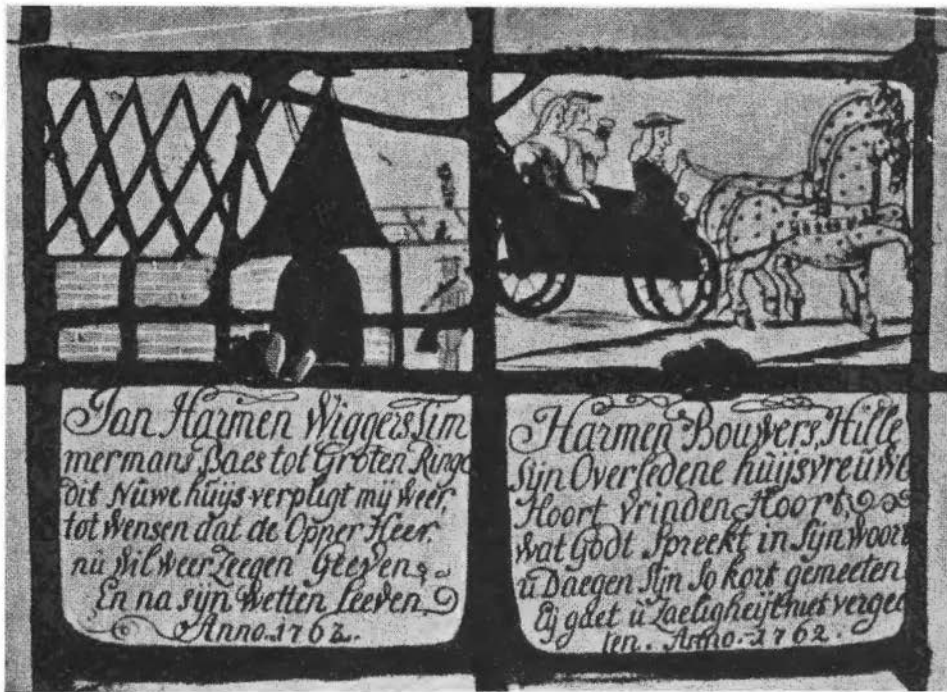 Jan Harmen Wiggers Tim
mermans Baes tot Groten Ringe
dit Nuwe huijs verpligt mij weer,
tot wensen dat de Opper Heer,
nu wil weer Zeegen Geeven,
En na sijn wetten Leeven
Anno. 1762.
Harmen Bouwers, Hille
Sijn Overledene huijsvreuwe
Hoort vrinden Hoort,
wat Godt Spreekt in Sijn woort
u Daegen Sijn So kort gemeeten
Eij gaet u Zaeligheijt niet vergee
ten. Anno. 1762.